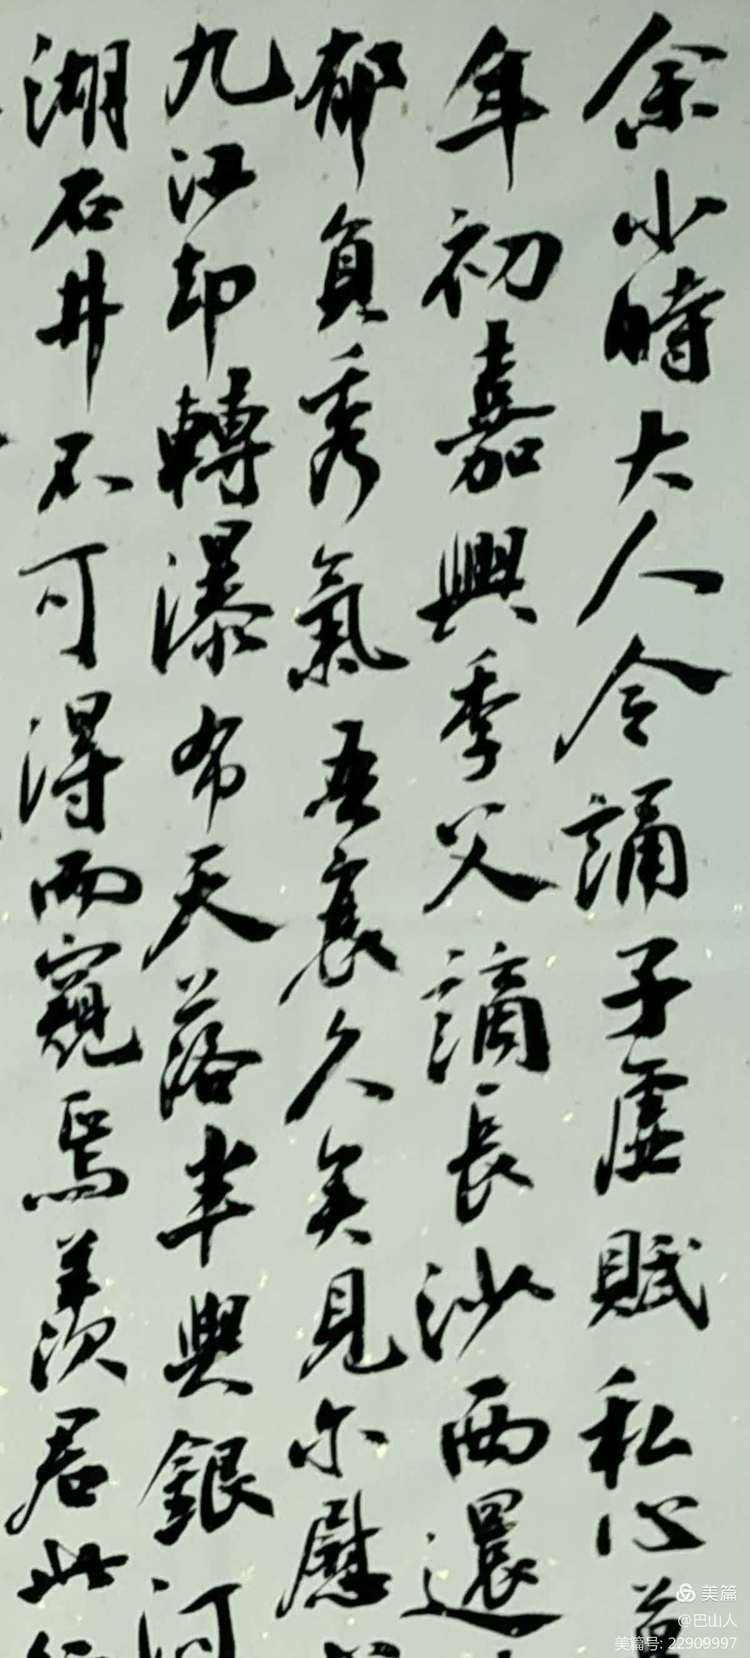 余小時大人令誦子虛賦私心慕
年初嘉興季父謫長沙西還
郁負秀氣吾衰久矣見尔慰
九江却轉瀑布天落半與銀河
湖石井不可得而窺焉羨君此
美篇
@巴山人
美篇号: 22909997